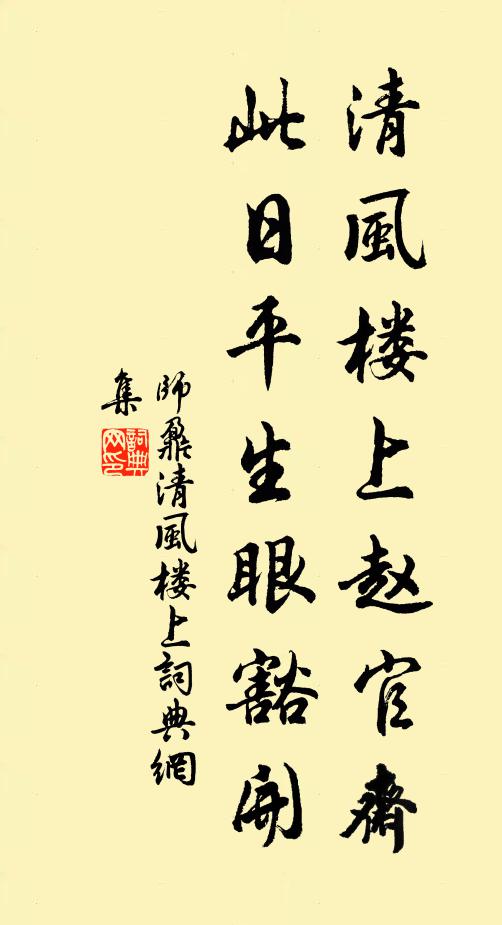 清風楼上赵官齋
此日平生眼豁開
師鼐清風楼上詞典網
集
詞典
网印